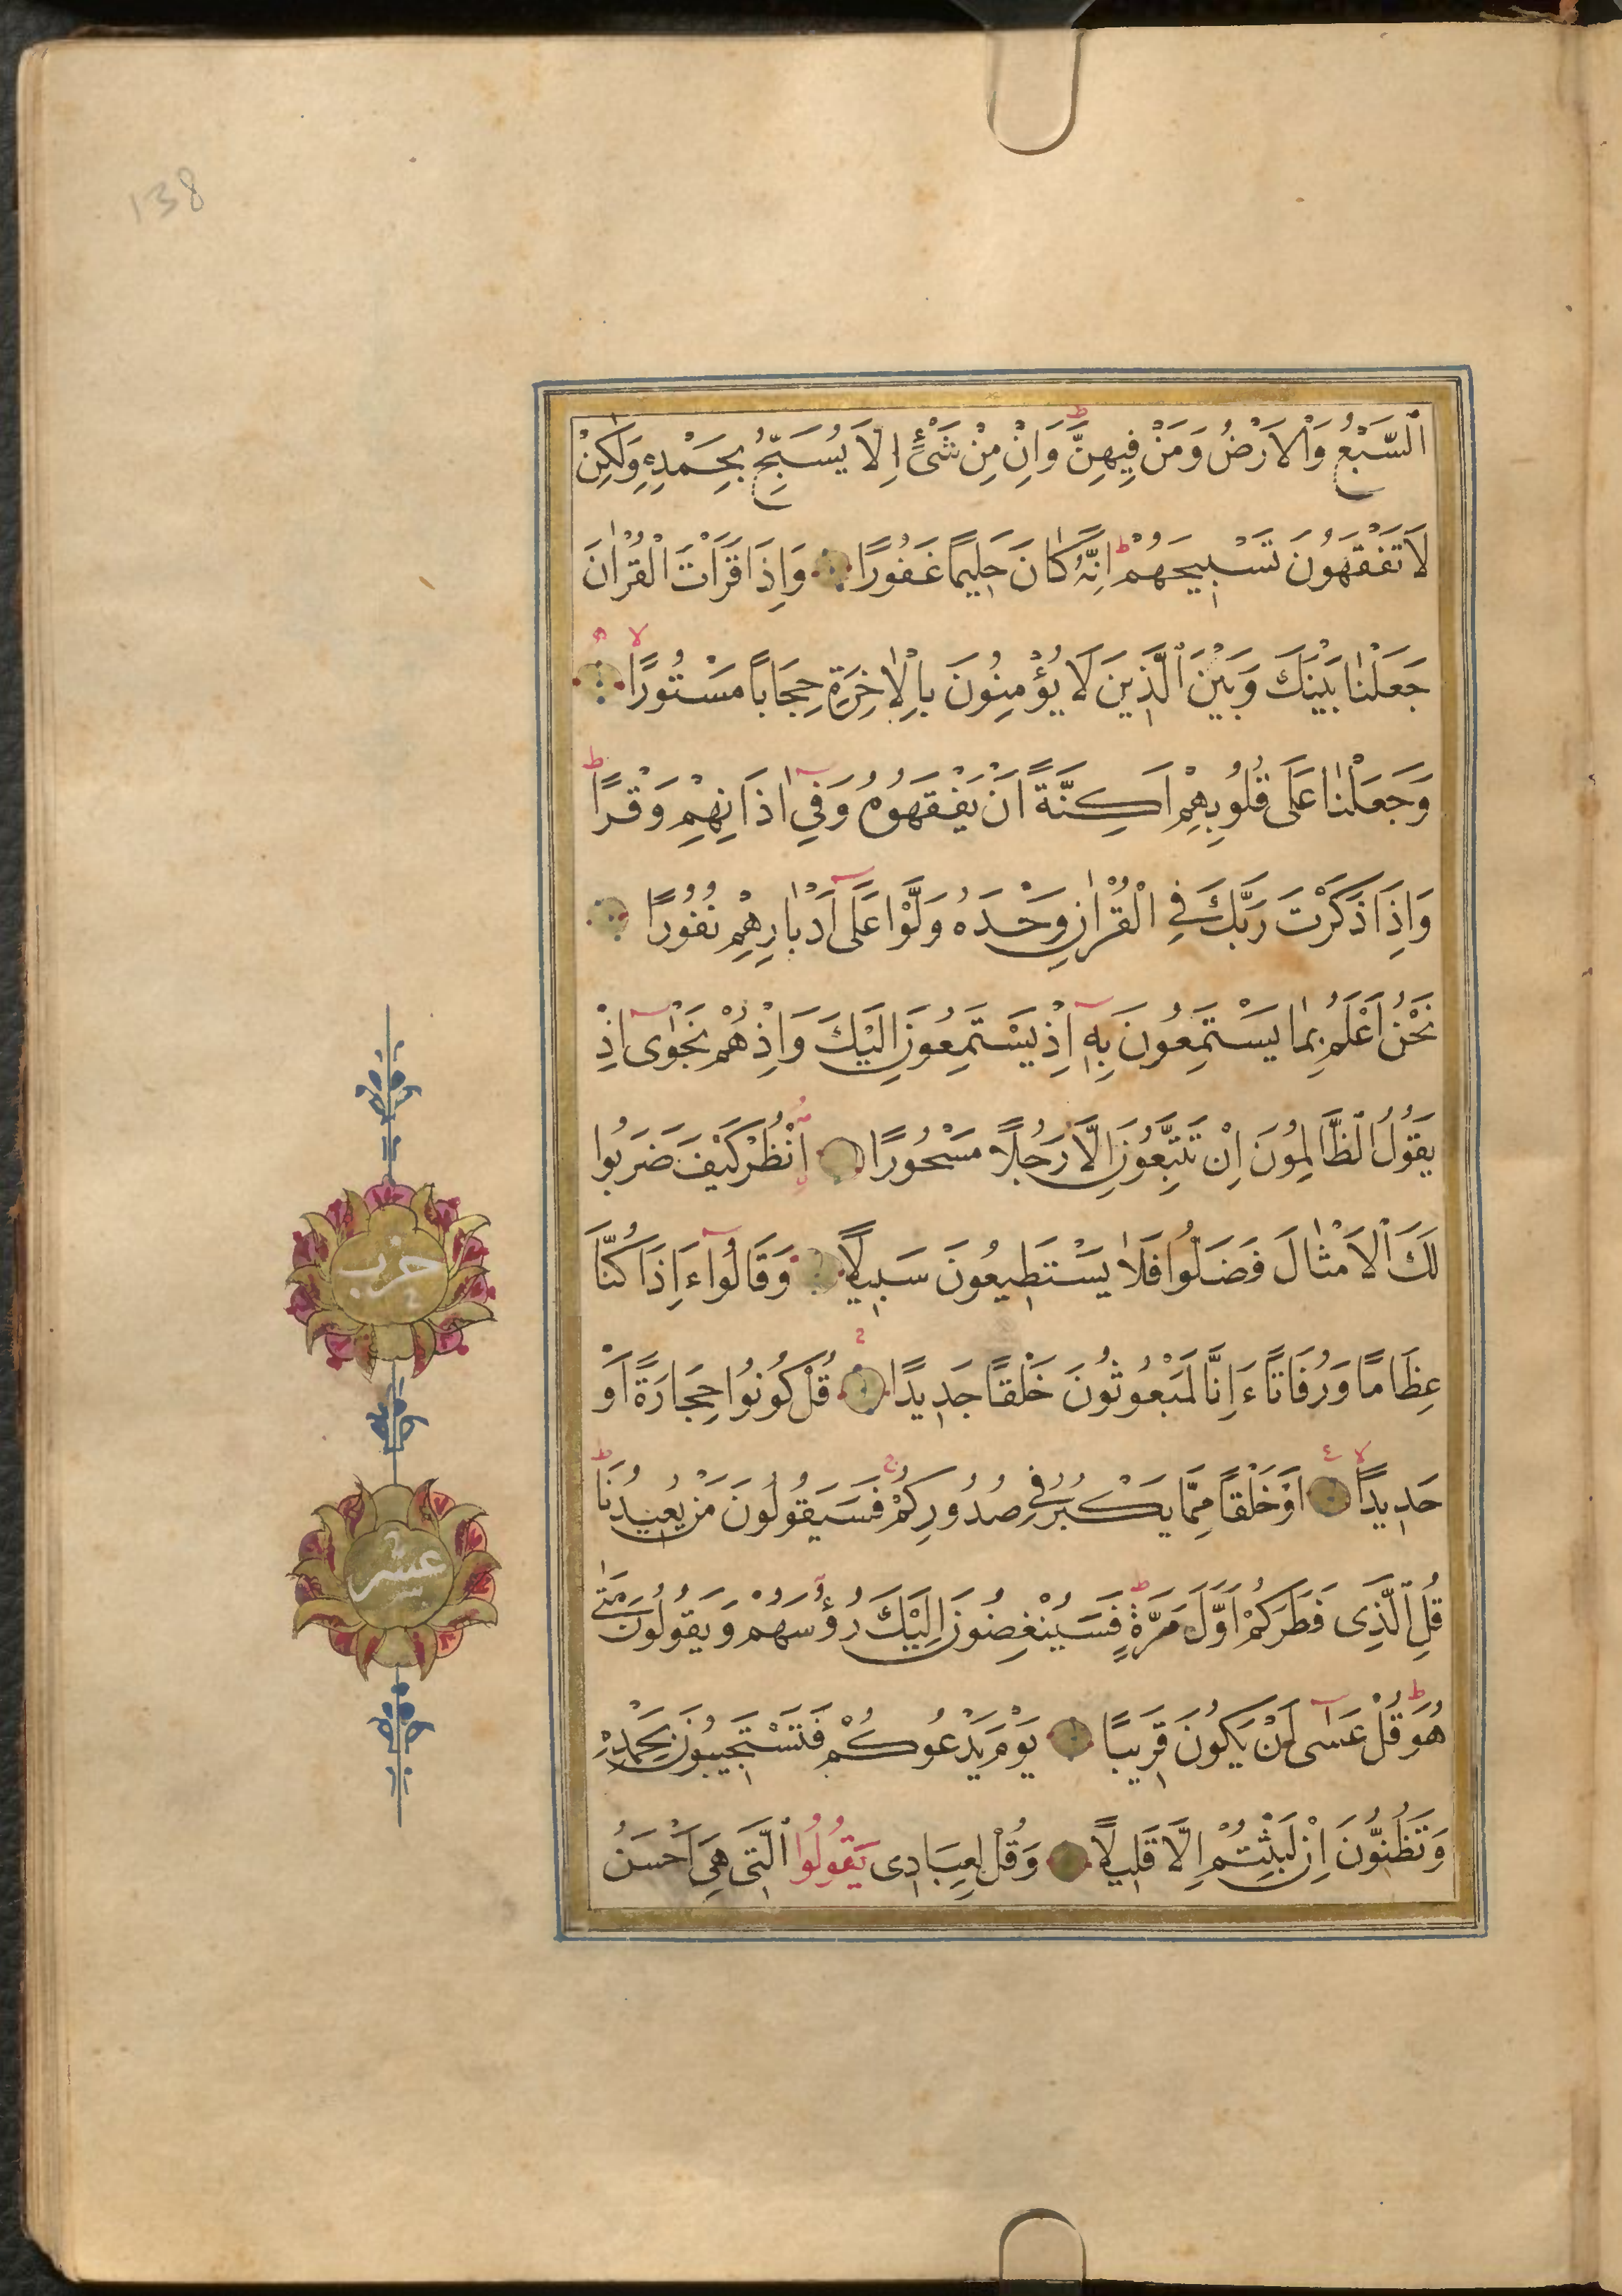 138
اَلسَّبْعُ وَالْاَرْضُ وَمَنْ فِيهِنَّ ط وَاِنْ مِنْ شَىْءٍ اِلَّا يُسَبِّحُ بِحَمْدِهٖ وَلٰكِنْ
لَا تَفْقَهُونَ تَسْبِيحَهُمْ ط اِنَّهُ كَانَ حَلِيمًا غَفُورًا وَاِذَا قَرَاْتَ الْقُرْاٰنَ
جَعَلْنَا بَيْنَكَ وَبَيْنَ الَّذِينَ لَا يُؤْمِنُونَ بِالْاٰخِرَةِ حِجَابًا مَسْتُورًا لا
وَجَعَلْنَا عَلٰى قُلُوبِهِمْ اَكِنَّةً اَنْ يَفْقَهُوهُ وَفِٓى اٰذَانِهِمْ وَقْرًا ط
وَاِذَا ذَكَرْتَ رَبَّكَ فِى الْقُرْاٰنِ وَحْدَهُ وَلَّوْا عَلٰٓى اَدْبَارِهِمْ نُفُورًا
نَحْنُ اَعْلَمُ بِمَا يَسْتَمِعُونَ بِهٖٓ اِذْ يَسْتَمِعُونَ اِلَيْكَ وَاِذْ هُمْ نَجْوٰٓى اِذْ
يَقُولُ الظَّالِمُونَ اِنْ تَتَّبِعُونَ اِلَّا رَجُلًا مَسْحُورًا اُنْظُرْ كَيْفَ ضَرَبُوا
لَكَ الْاَمْثَالَ فَضَلُّوا فَلَا يَسْتَطِيعُونَ سَبِيلًا وَقَالُوٓا ءَاِذَا كُنَّا
عِظَامًا وَرُفَاتًا ءَاِنَّا لَمَبْعُوثُونَ خَلْقًا جَدِيدًا قُلْ كُونُوا حِجَارَةً اَوْ
حَدِيدًا لا اَوْ خَلْقًا مِمَّا يَكْبُرُ فِى صُدُورِكُمْ ج فَسَيَقُولُونَ مَنْ يُعِيدُنَا ط
قُلِ الَّذِى فَطَرَكُمْ اَوَّلَ مَرَّةٍ ط فَسَيُنْغِضُونَ اِلَيْكَ رُؤُسَهُمْ وَيَقُولُونَ مَتٰى
هُوَ ط قُلْ عَسٰٓى اَنْ يَكُونَ قَرِيبًا يَوْمَ يَدْعُوكُمْ فَتَسْتَجِيبُونَ بِحَمْدِهٖ
وَتَظُنُّونَ اِنْ لَبِثْتُمْ اِلَّا قَلِيلًا وَقُلْ لِعِبَادِى يَقُولُوا الَّتِى هِىَ اَحْسَنُ
حزب
عشر